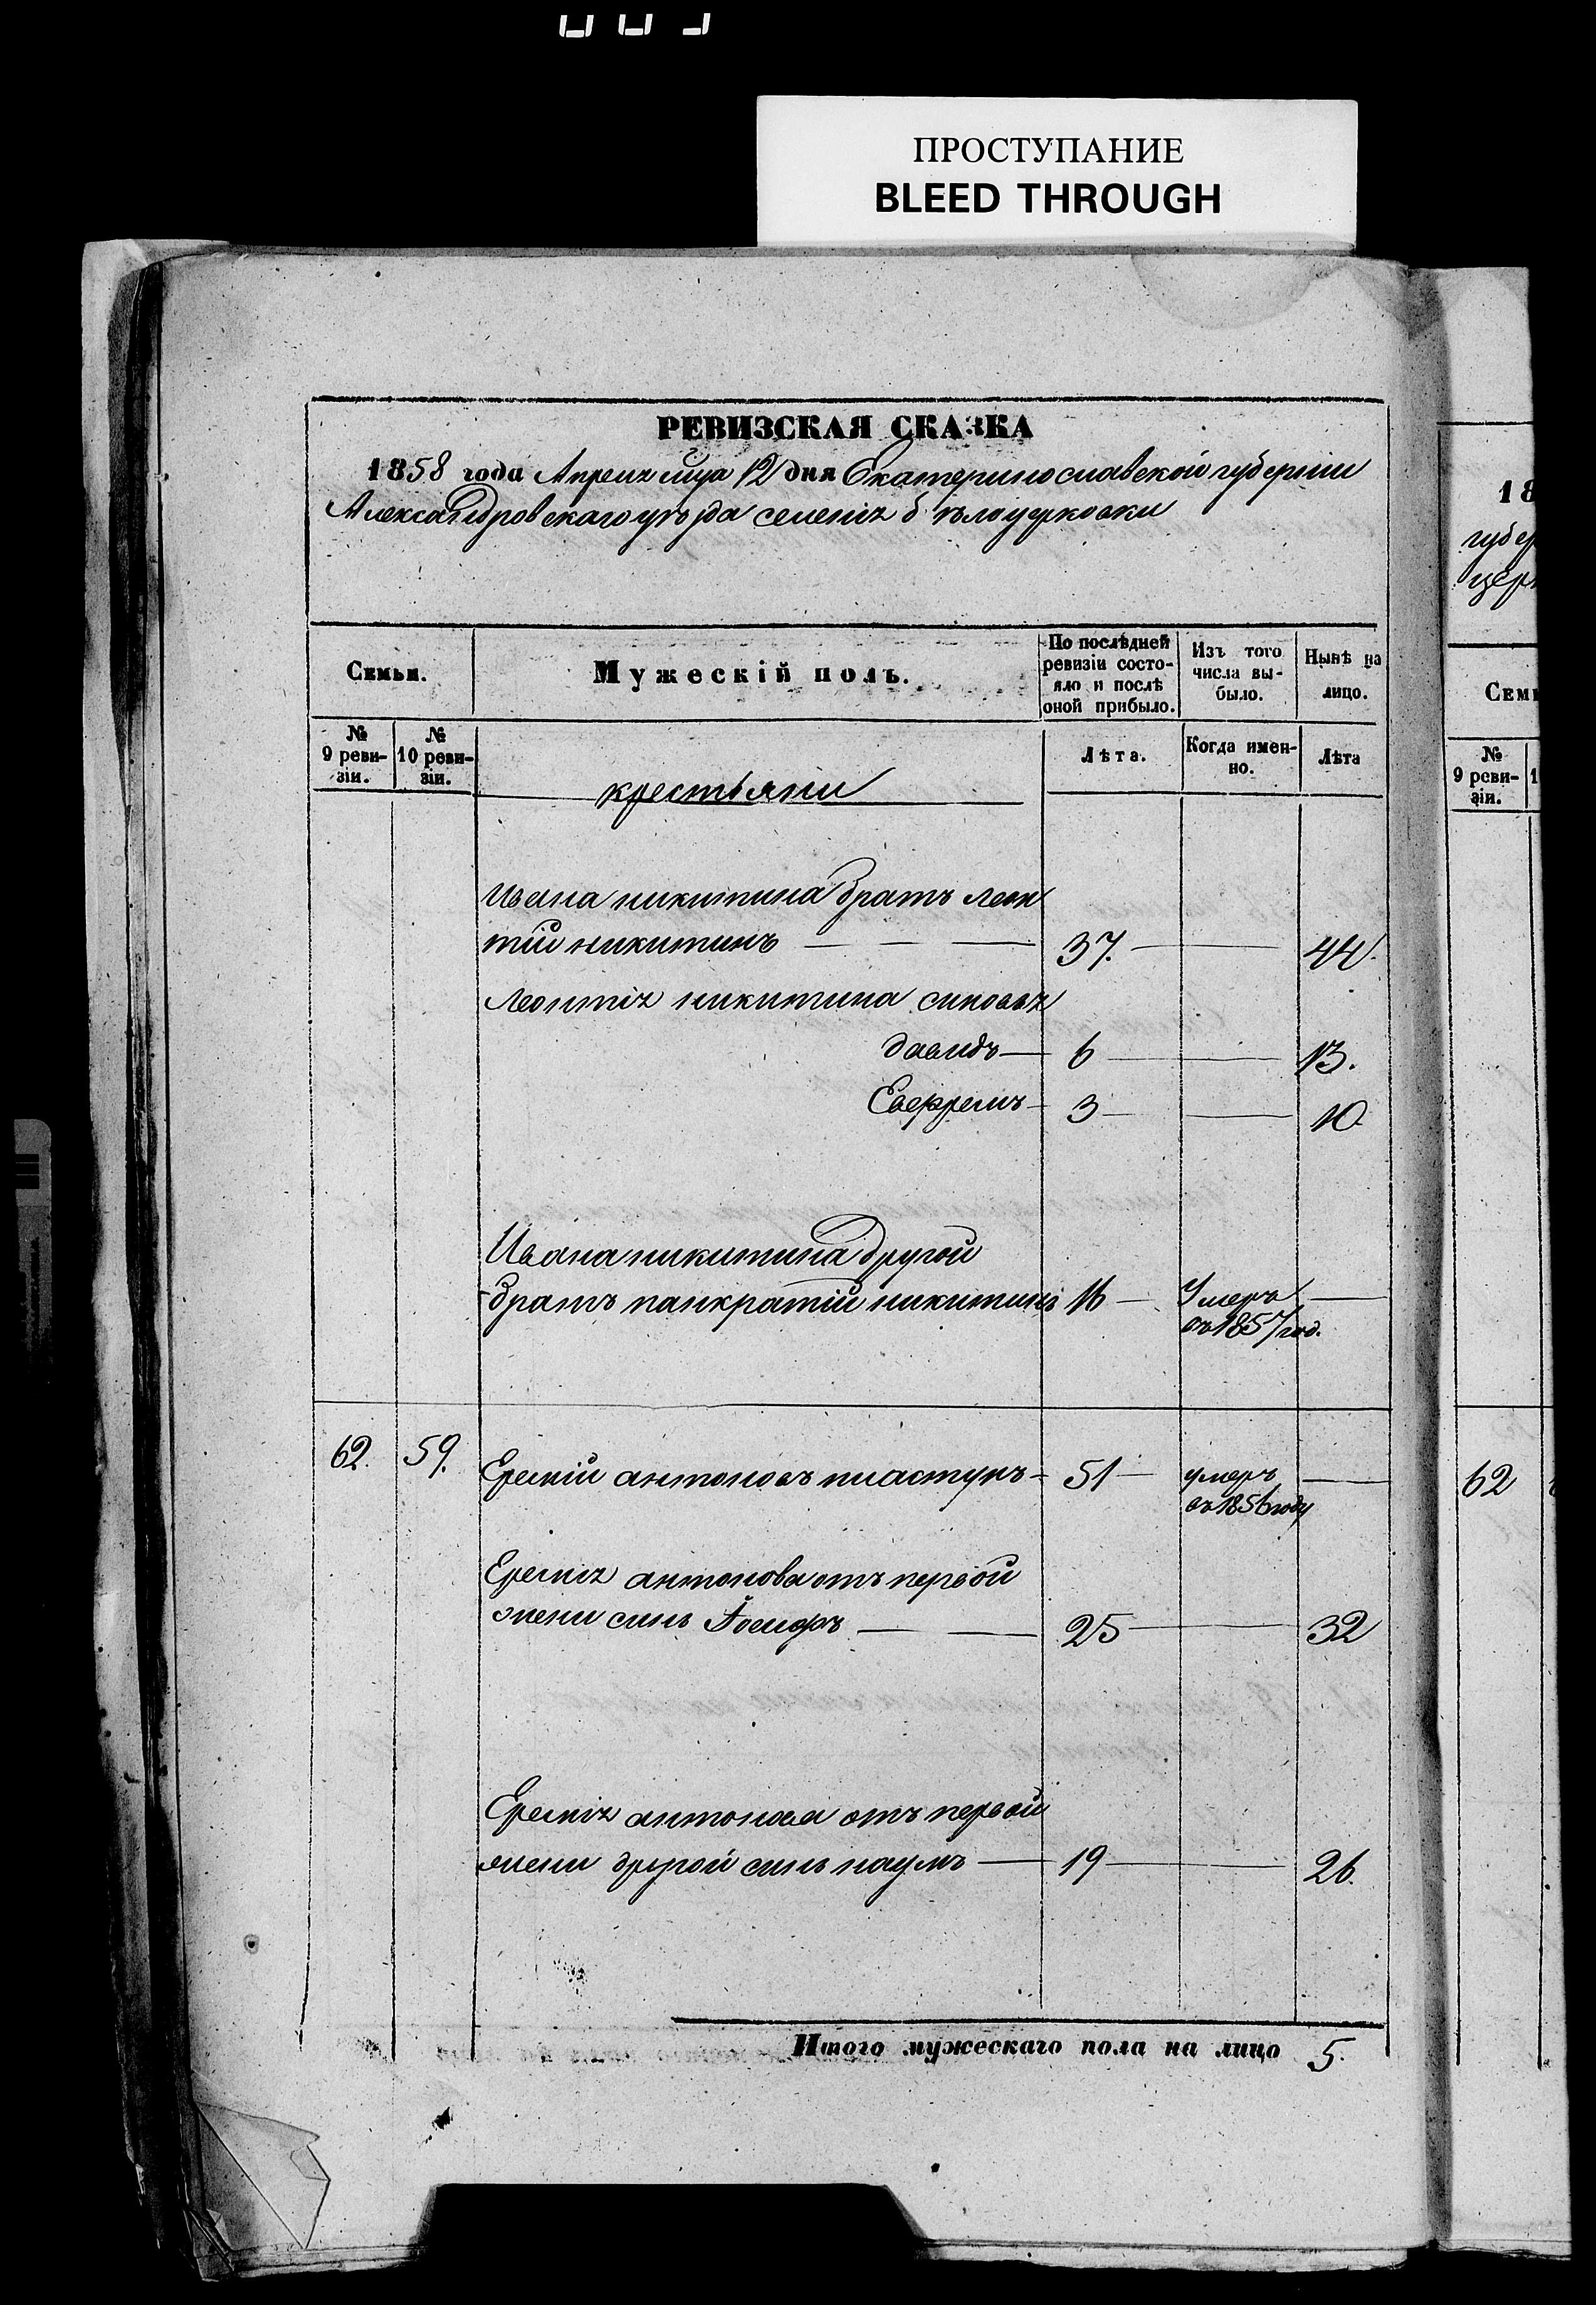 ПРОСТУПАНИЕ
BLEED THROUGH
РЕВИЗСКАЯ СКАЗКА
1858 года Апреля мца 12 дня Екатеринославской губерніи
Александровскаго уезда селенія бѣлоцерковки
Семьи.
Мужескій полъ.
По послѣдней ревизіи состо-
яло и послѣ
оной прибыло.
Изъ того
числа вы-
было.
Нынѣ на
лицо.
№
9 реви-
зіи.
№
10 реви-
зіи.
крестьяни
Лѣта.
Когда имен-
но.
Лѣта
Ивана никитина братъ леон
тій никитинъ 37. 44.
Леонтія никитина синовья
давидъ 6 13.
Евфремъ 3 10
Ивана никитина другой
братъ панкратій никитинъ 16 Умеръ
въ 1857 год.
62. 59. Еремій антоновъ пластунъ 51 умеръ
въ 1856 году
Еремія антонова отъ первой
жени синь 25 32
Еремія антонова отъ первой
жени другой синь наумъ 19 26.
Итого мужескаго пола на лицо 5.
18
губер
цер
Семь
№
9 реви-
зіи.
62